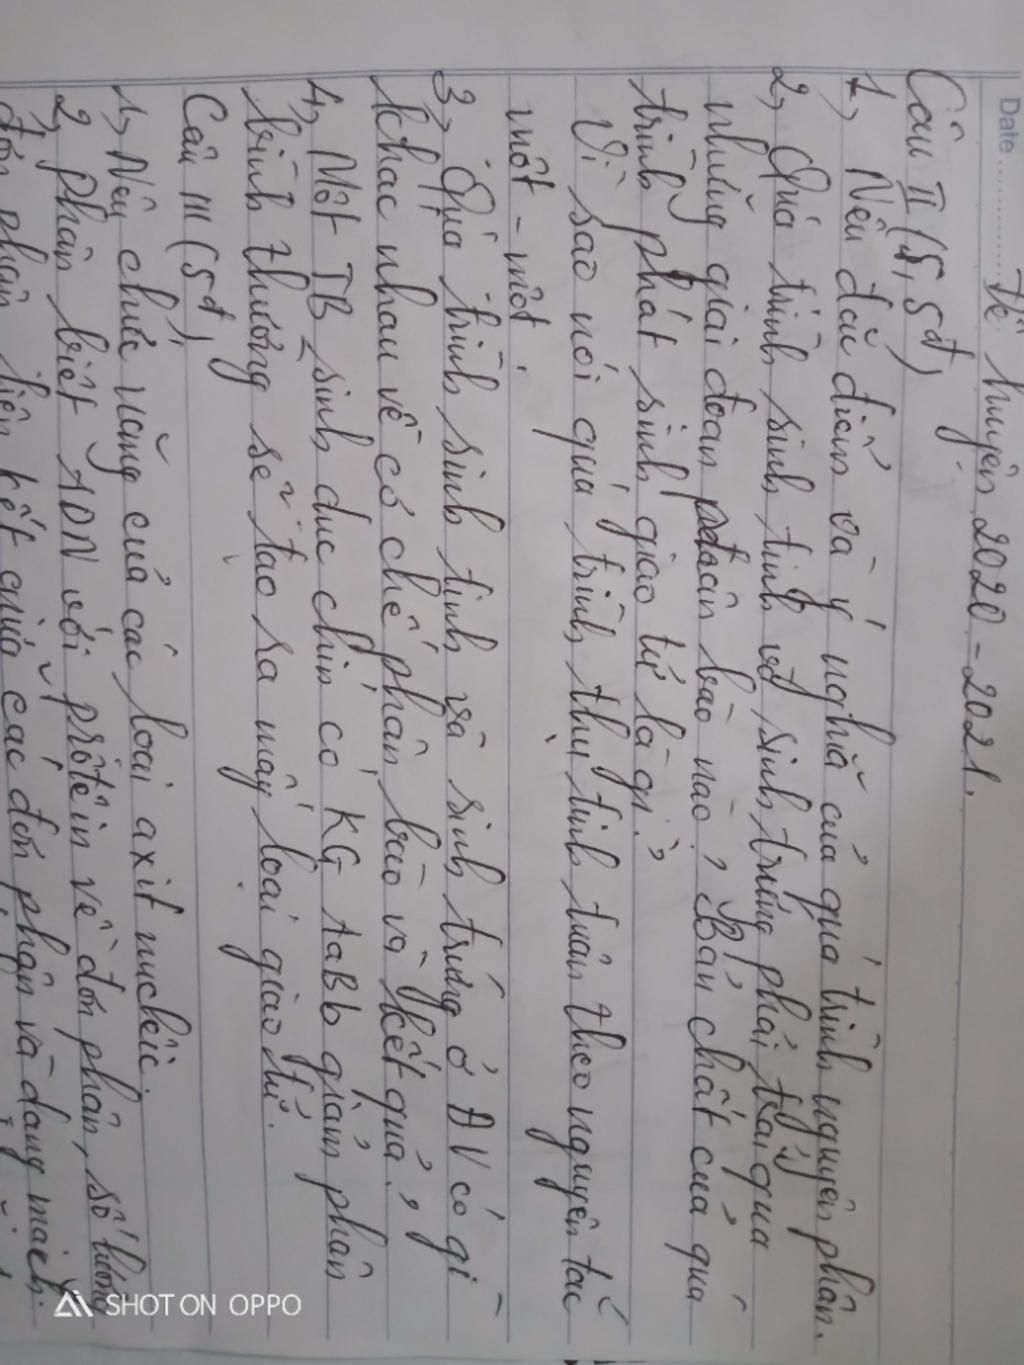 Date ............ Đề huyện 2020 - 2021.
Câu II (5,5đ)
1, Nêu đặc điểm và ý nghĩa của quá trình nguyên phân.
2, Quá trình sinh tinh và sinh trứng phải trải qua
những giai đoạn phân bào nào? Bản chất của quá
trình phát sinh giao tử là gì?
Vì sao nói quá trình thụ tinh tuân theo nguyên tắc
một - một.
3, Quá trình sinh tinh và sinh trứng ở ĐV có gì
khác nhau về cơ chế phân bào và kết quả?
4, Một TB sinh dục chín có KG AaBb giảm phân
bình thường sẽ tạo ra mấy loại giao tử.
Câu III (5đ)
1, Nêu chức năng của các loại axit nucleic.
2, Phân biệt ADN với prôtêin về đơn phân, số lượng
đơn phân, liên kết giữa các đơn phân và dạng mạch.
SHOT ON OPPO